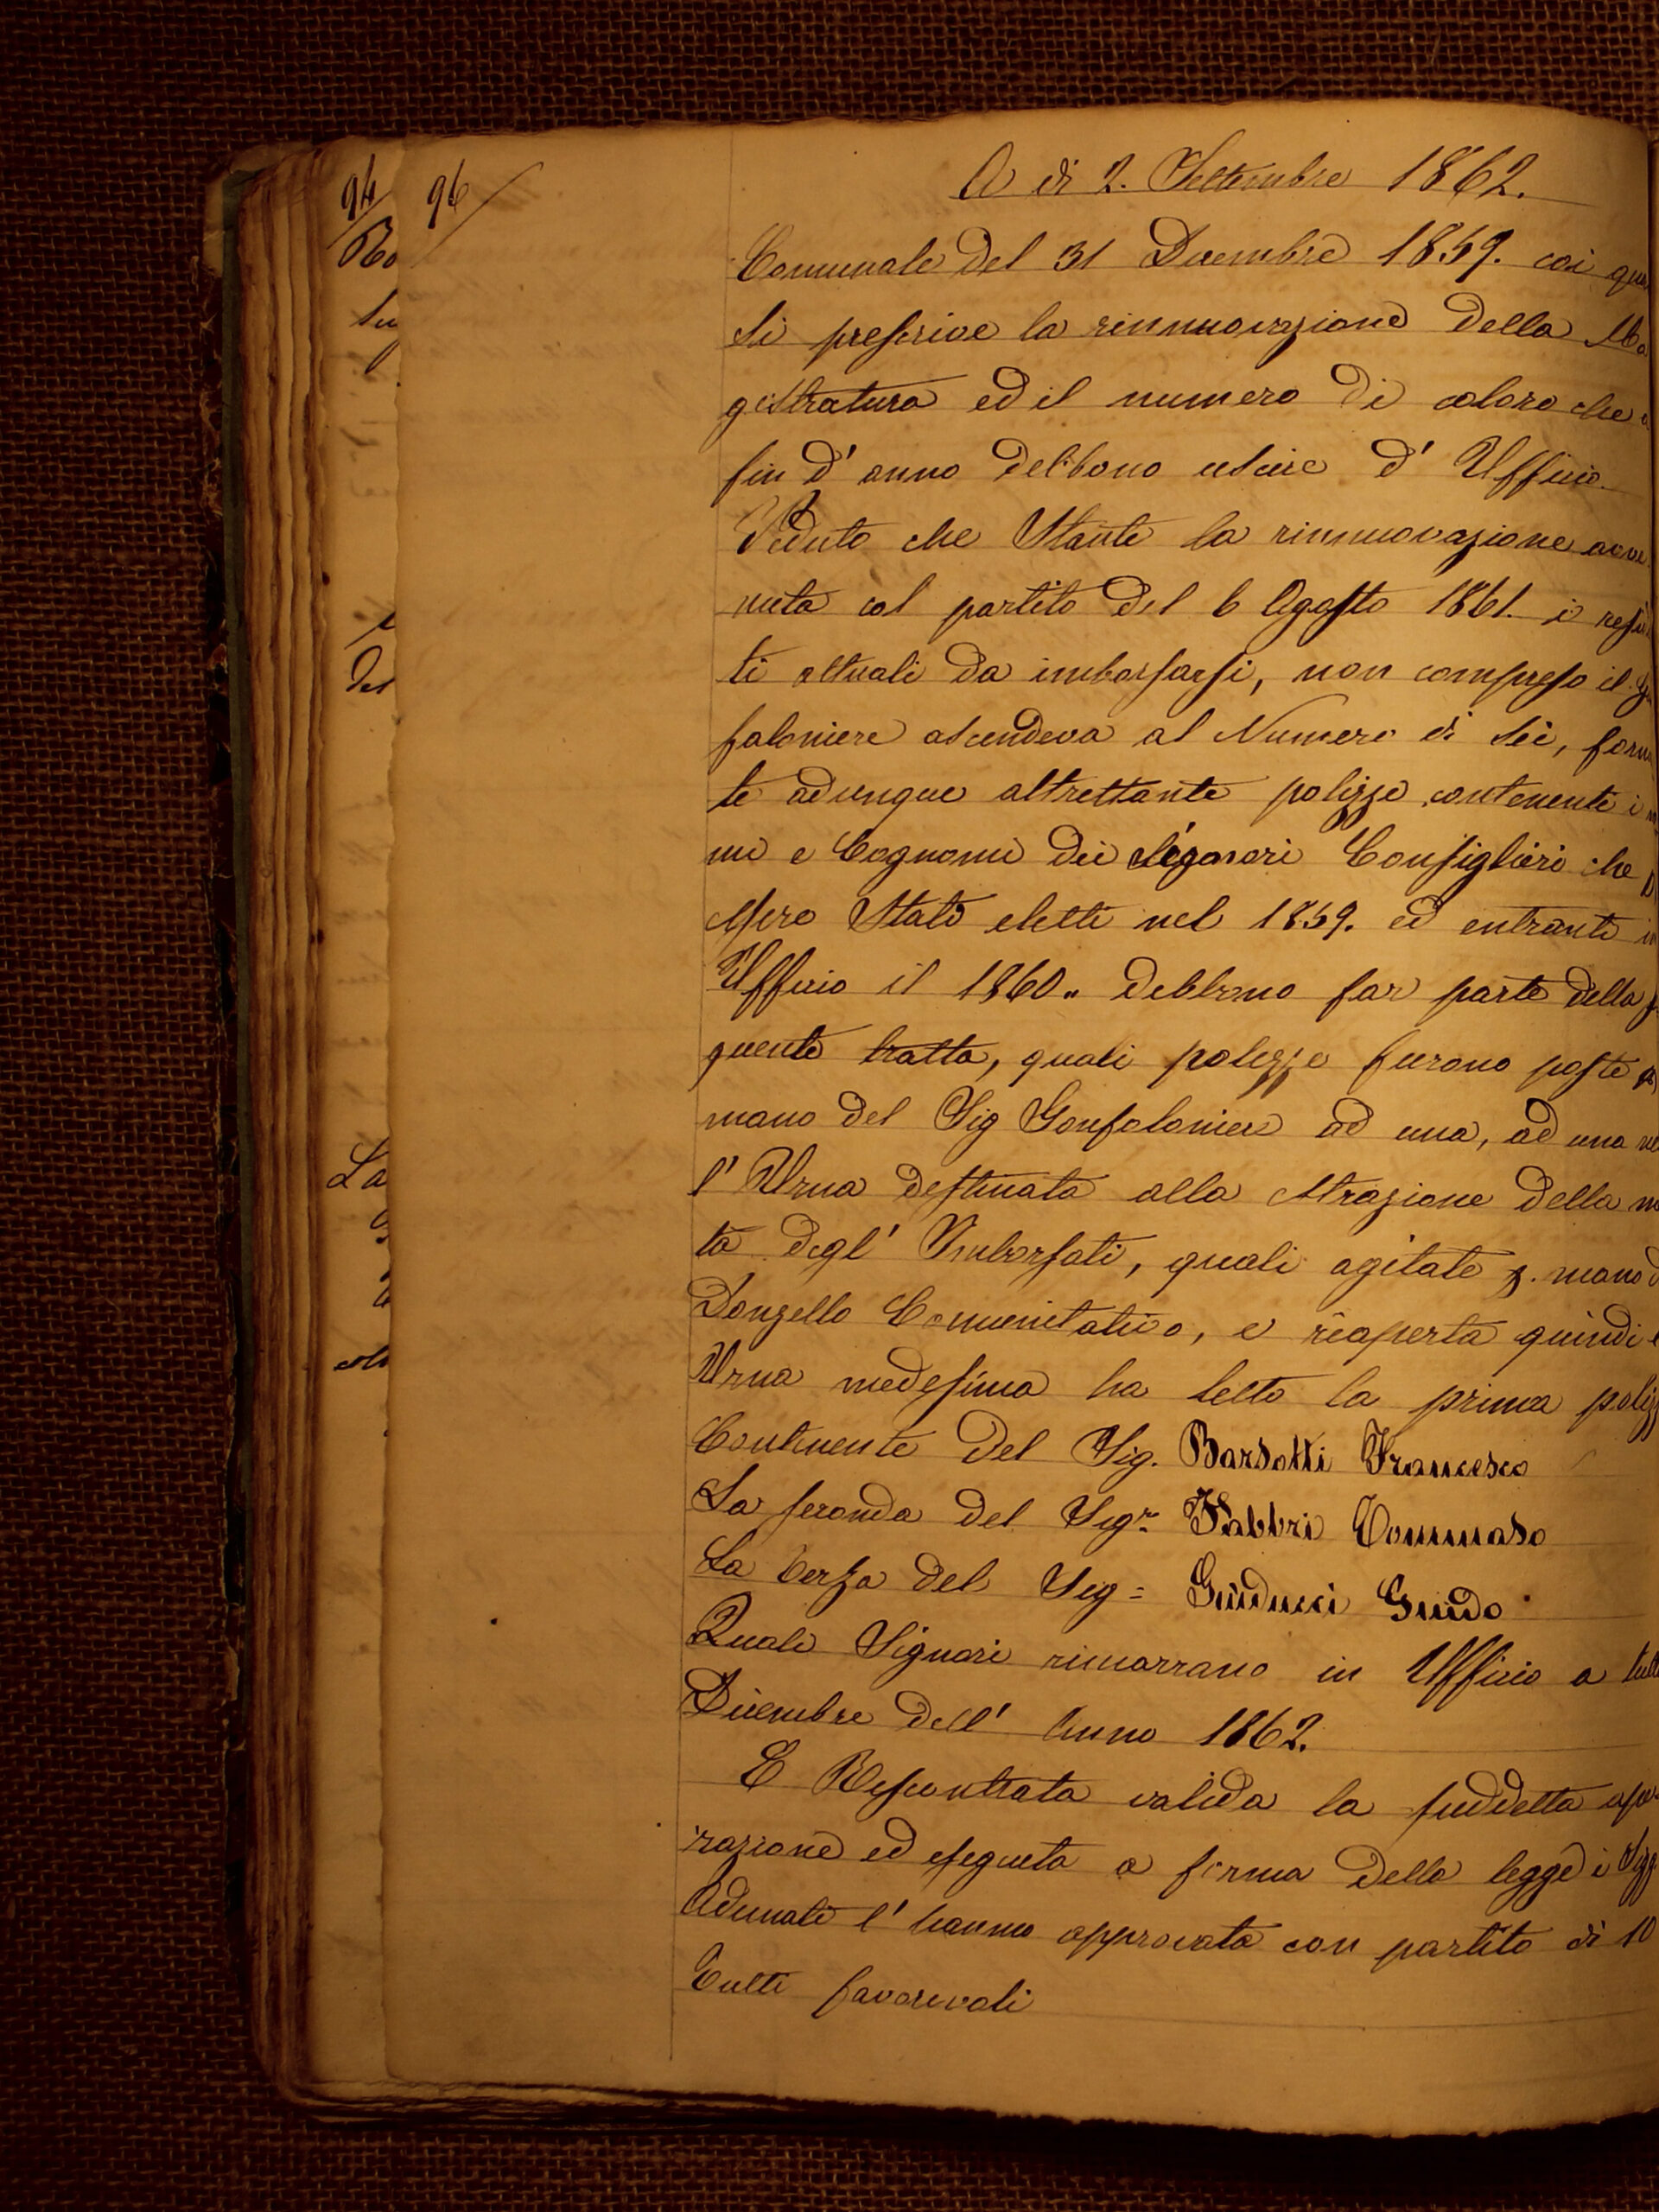 94
96
Ro
La
A di 2. Settembre 1862.
Comunale del 31 Decembre 1859. coi qua
si prescrive la rinnuovazione della Ma
gistratura ed il numero di coloro che a
fin d' anno debbono uscire d' Ufficio.
Veduto che Stante la rinnuovazione avve
nuta col partito del 6 Agosto 1861. i resie
ti attuali da imborsarsi, non compreso il Go
faloniere ascendeva al Numero di sei, forma
te adunque altrettante polizze contenente i n
mi e Cognomi dei Signori Consiglieri che p
essere Stati eletti nel 1859. ed entranti in
Ufficio il 1860.. debbono far parte della p
quente tratta, quali polizze furono poste p
mano del Sig Gonfaloniere ad una, ad una ne
l' Urna destinata alla estrazione della me
tà degl' Imborsati, quali agitate p. mano d
Donzello Comunitativo, e riaperta quindi e
Urna medesima ha letto la prima poliz
Contenente del Sig. Barsotti Francesco
La seconda del Sigr. Fabbri Tommaso
La terza del Sig= Guiducci Guido
Quali Signori rimarrano in Ufficio a tutt
Dicembre dell' Anno 1862.
E Riscontrata valida la suddetta ope
razione ed eseguita a forma della legge i Sigg
Adunati l' hanno approvata con partito di 10
Tutti favorevoli